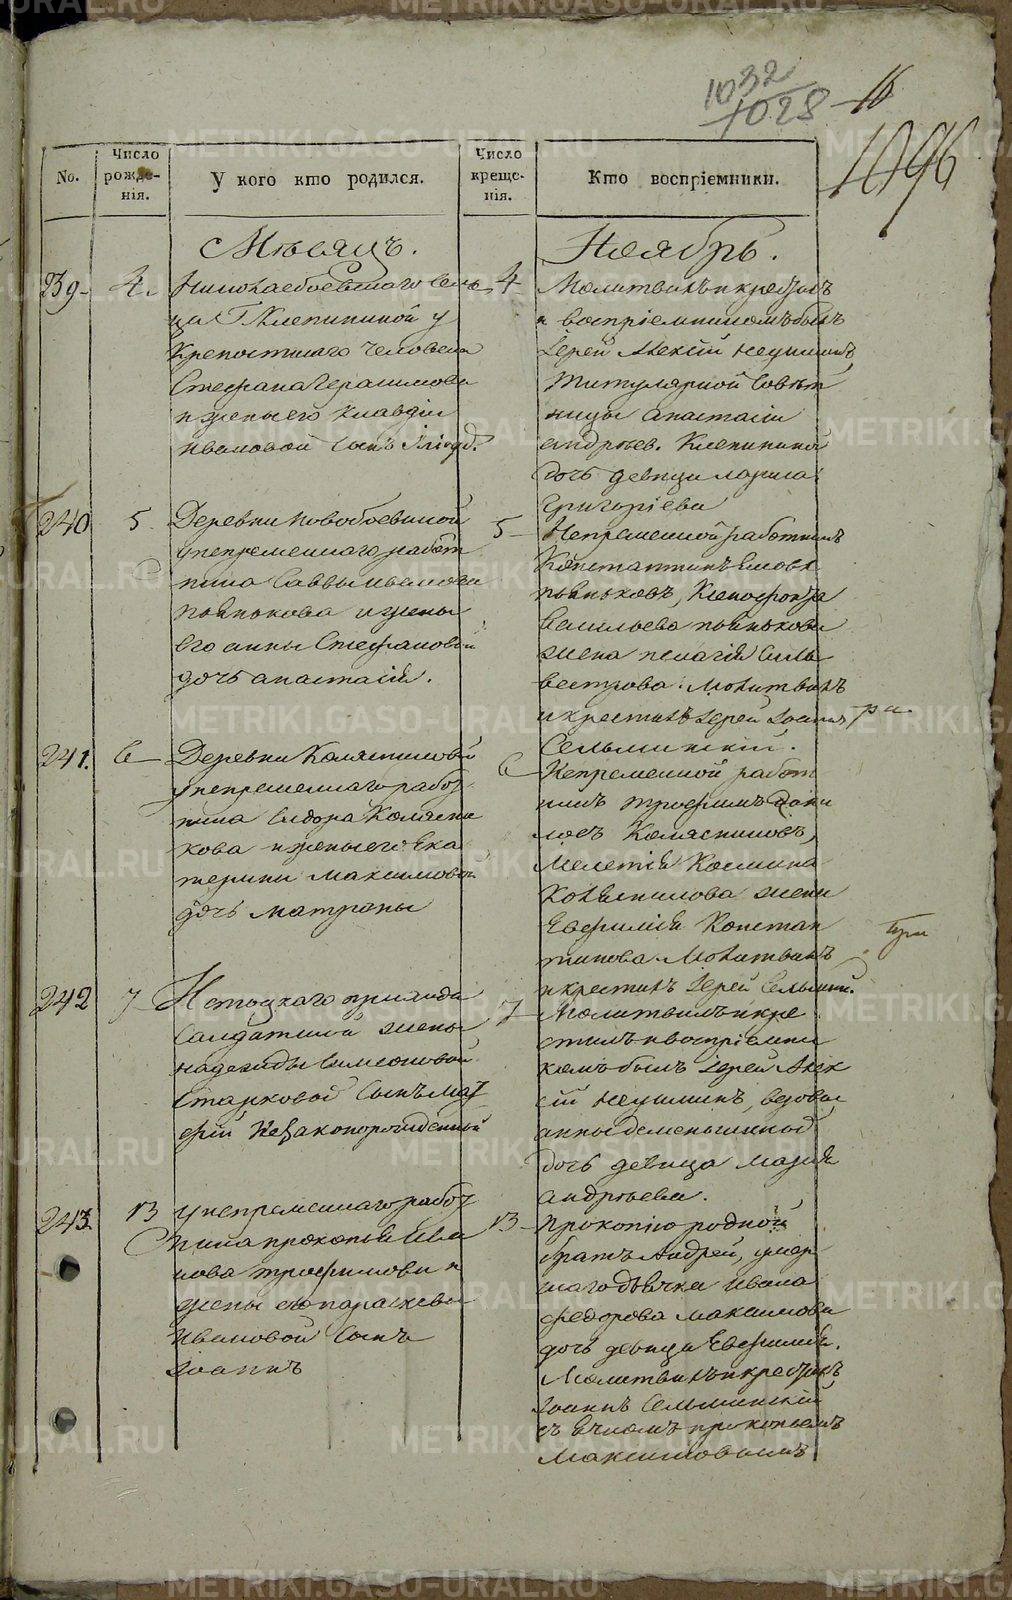 1032
1028
16
1096
No.
Число рожденія.
У кого кто родился.
Число крещенія.
Кто воспріемники.
Мѣсяцъ.
Ноябрь.
239
4.
Николаебоевшаго
Г Клепининой у
Крепостнаго человека
Стефана Герасимова
и жены его Клавдіи
Ивановой сынъ
4
Молитвилъ и крестилъ
и воспріемникомъ былъ
Іерей Алексій
Титулярной Совѣт
ницы Анастасіи
Андреев. Клепининой
дочь девица Лариса
Григоріева
240
5
Деревни Новобоевской
у непременнаго работ
ника Саввы Иванова
Понькова и жены
его Анны Стефановой
дочь Анастасія.
5
Непременной работникъ
Константинъ
Поньковъ, Ксенофонта
Васильева Понькова
жена Пелагія Силь
вестрова. Молитвилъ
и крестилъ Іерей Іоаннъ
Сельменскій.
241.
6
Деревни Колясниковой
у непременнаго работ
ника Сидора Колясни
кова и жены его Ека
терины Максимовой
дочь Матроны
6
Непременной работ
никъ Трофимъ Дани
ловъ Колясниковъ,
Мелетія Косьмина
Колясникова жена
Евфимія Констан
тинова Молитвилъ
и крестилъ Іерей Сельмин.
242
7
Исетскаго
Солдатской жены
Надежды Симеоновой
Старковой сынъ Мат
фій Незаконорожденный
7
Молитвилъ и кре
стилъ и воспріемни
комъ былъ Іерей Алек
сій
Анны Деменьшиной
дочь девица Марія
Андреева.
243.
13
у непременнаго работ
ника Прокопья Ива
нова Трофимова и
жены его Параскевы
Ивановой сынъ
Іоаннъ
13
Прокопію родной
братъ Андрей, умер
шаго дьячка Ивана
Федорова Максимова
дочь девица Евфимія.
Молитвилъ и крестилъ
Іоаннъ Сельменскій
съ Прокопьемъ
Максимовымъ
METRIKI.GASO-URAL.RU